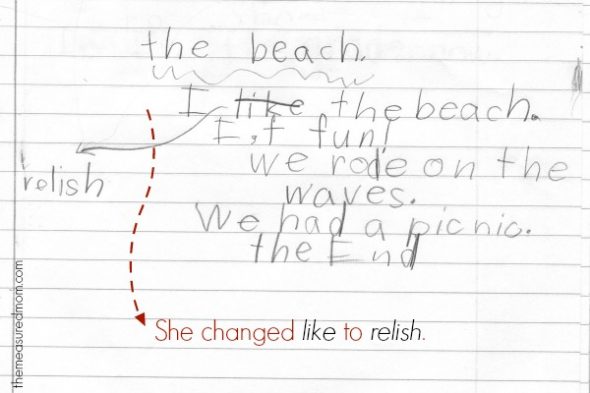 the beach.
I like the beach.
relish
I,t fun!
we rode on the
waves.
We had a picnic.
the End
She changed like to relish.
themeasuredmom.com